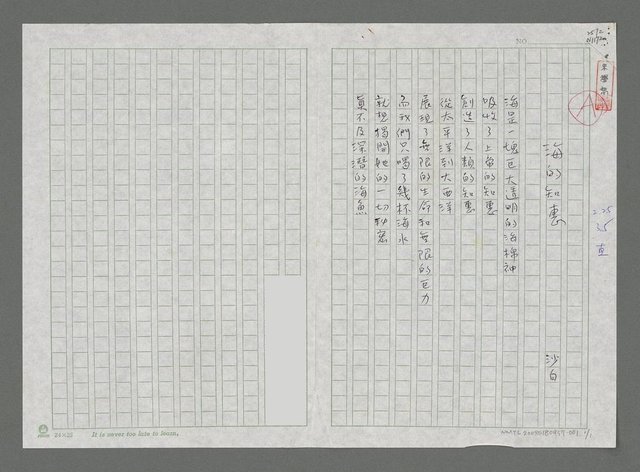 NO.
A
海的知惠
沙白
海是一塊巨大透明的海棉神
吸收了上帝的知惠
創造了人類的知惠
從太平洋到大西洋
展現了無限的生命和無限的巨力
而我們只喝了幾杯海水
就想揭開她的一切秘密
真不及深潛的海魚
24×25
It is never too late to learn.